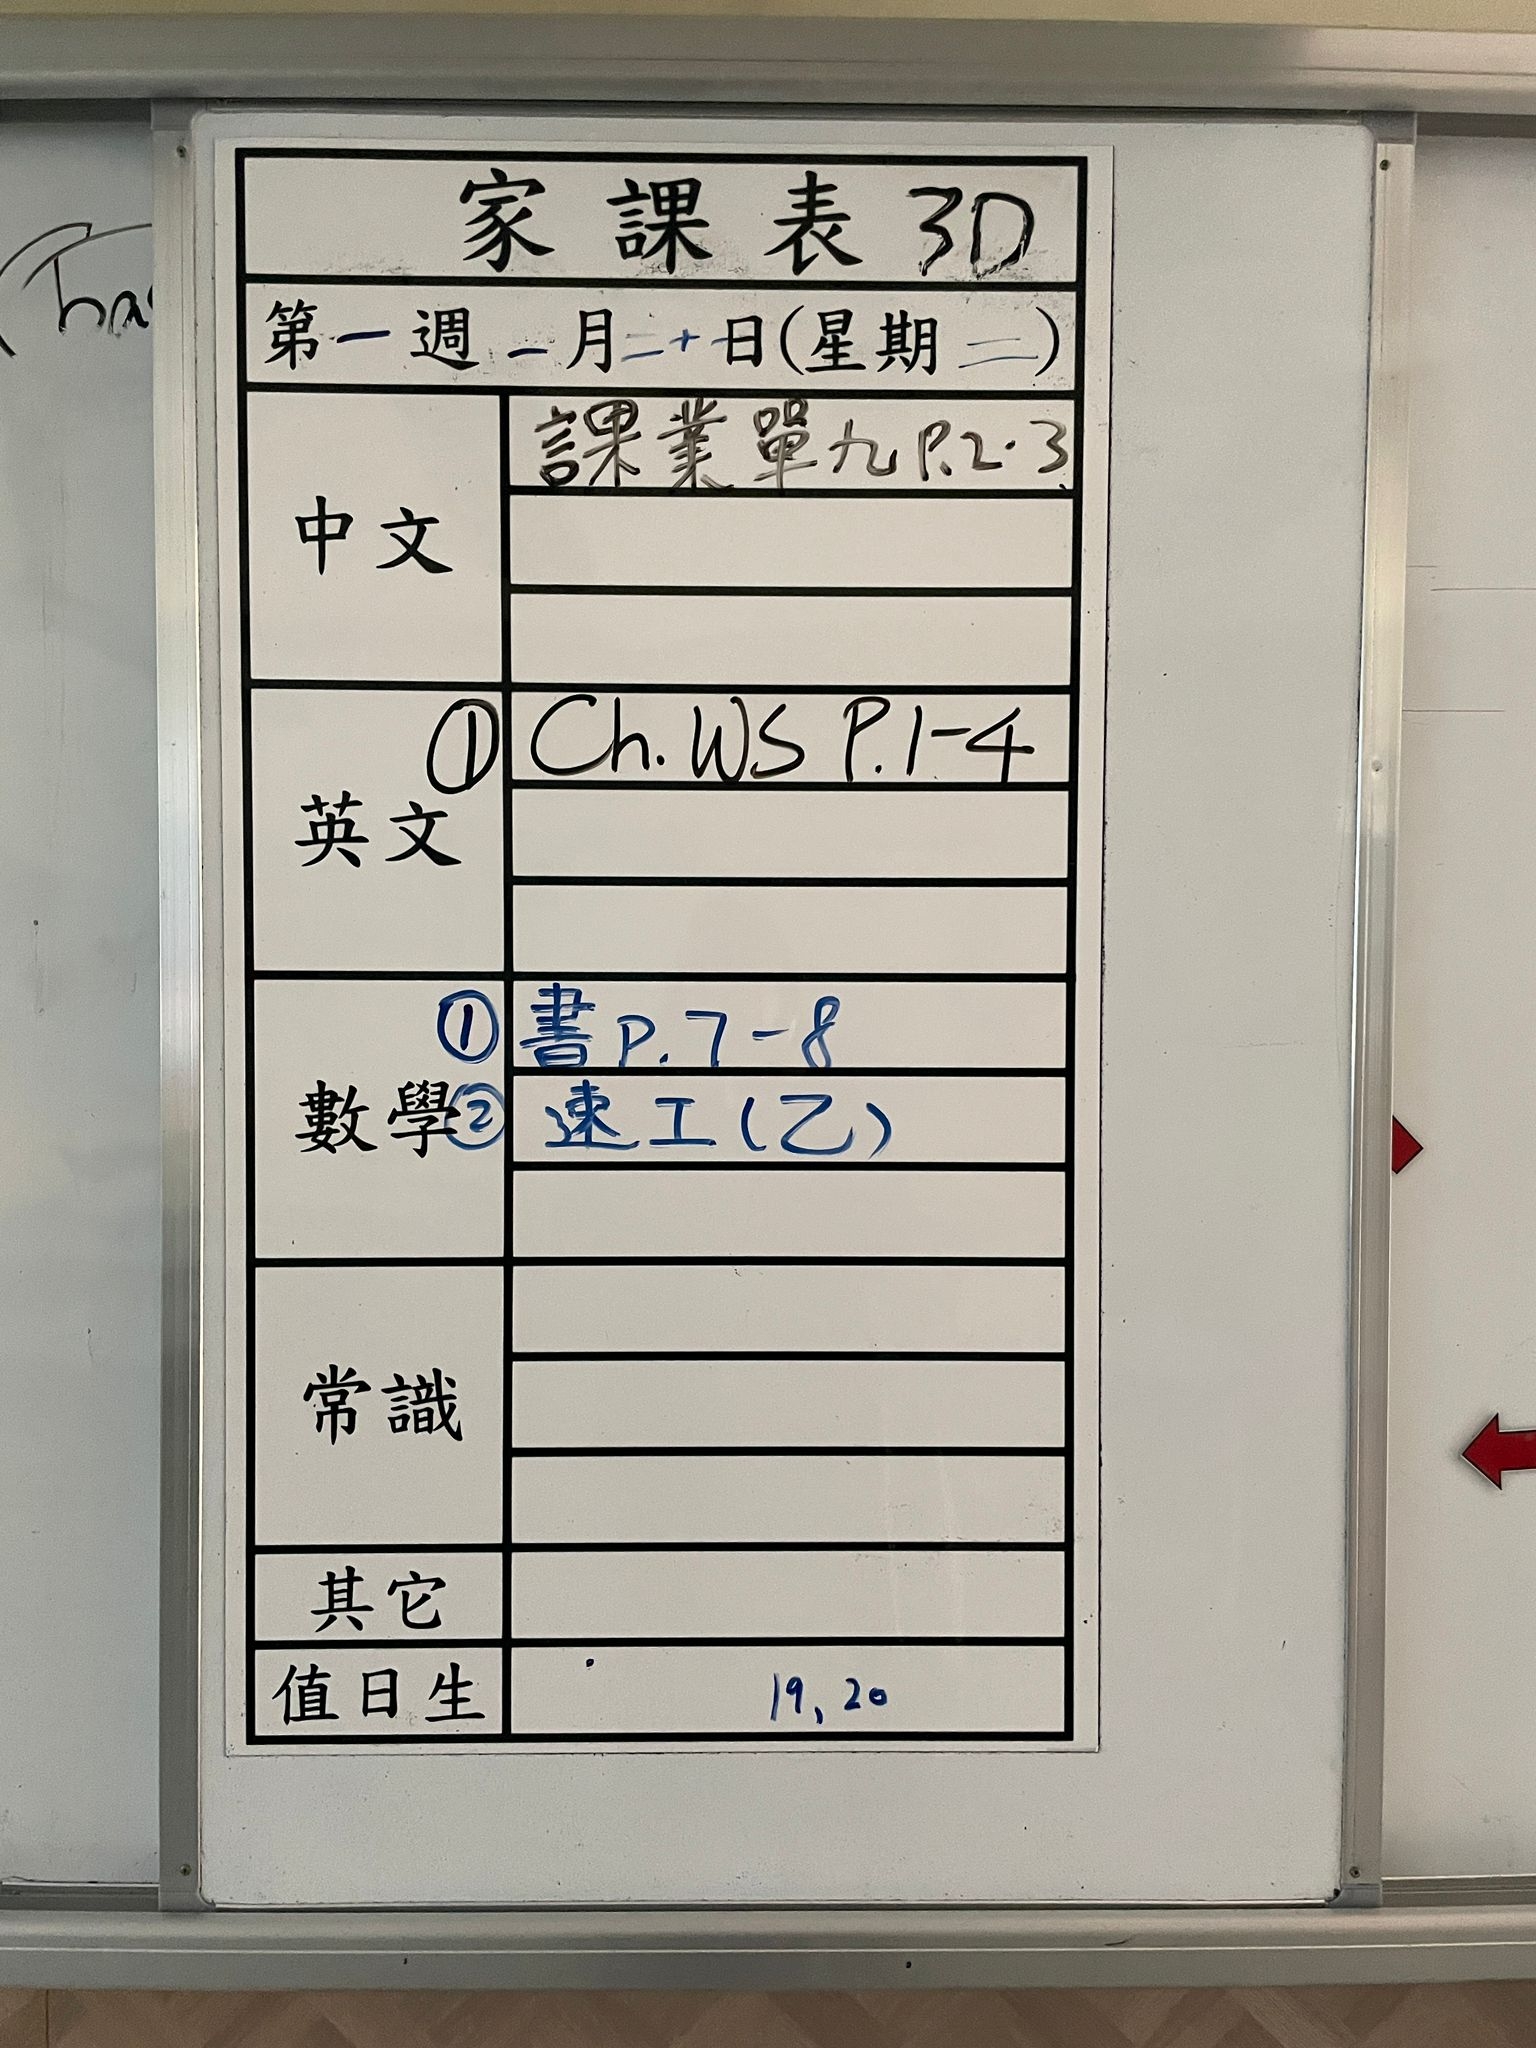 家課表 3D
第一週 一月二十日(星期二)
中文
課業單九 P.2.3
英文
① Ch. WS P.1-4
數學
① 書 P.7-8
② 速工(乙)
常識
其它
值日生 19, 20